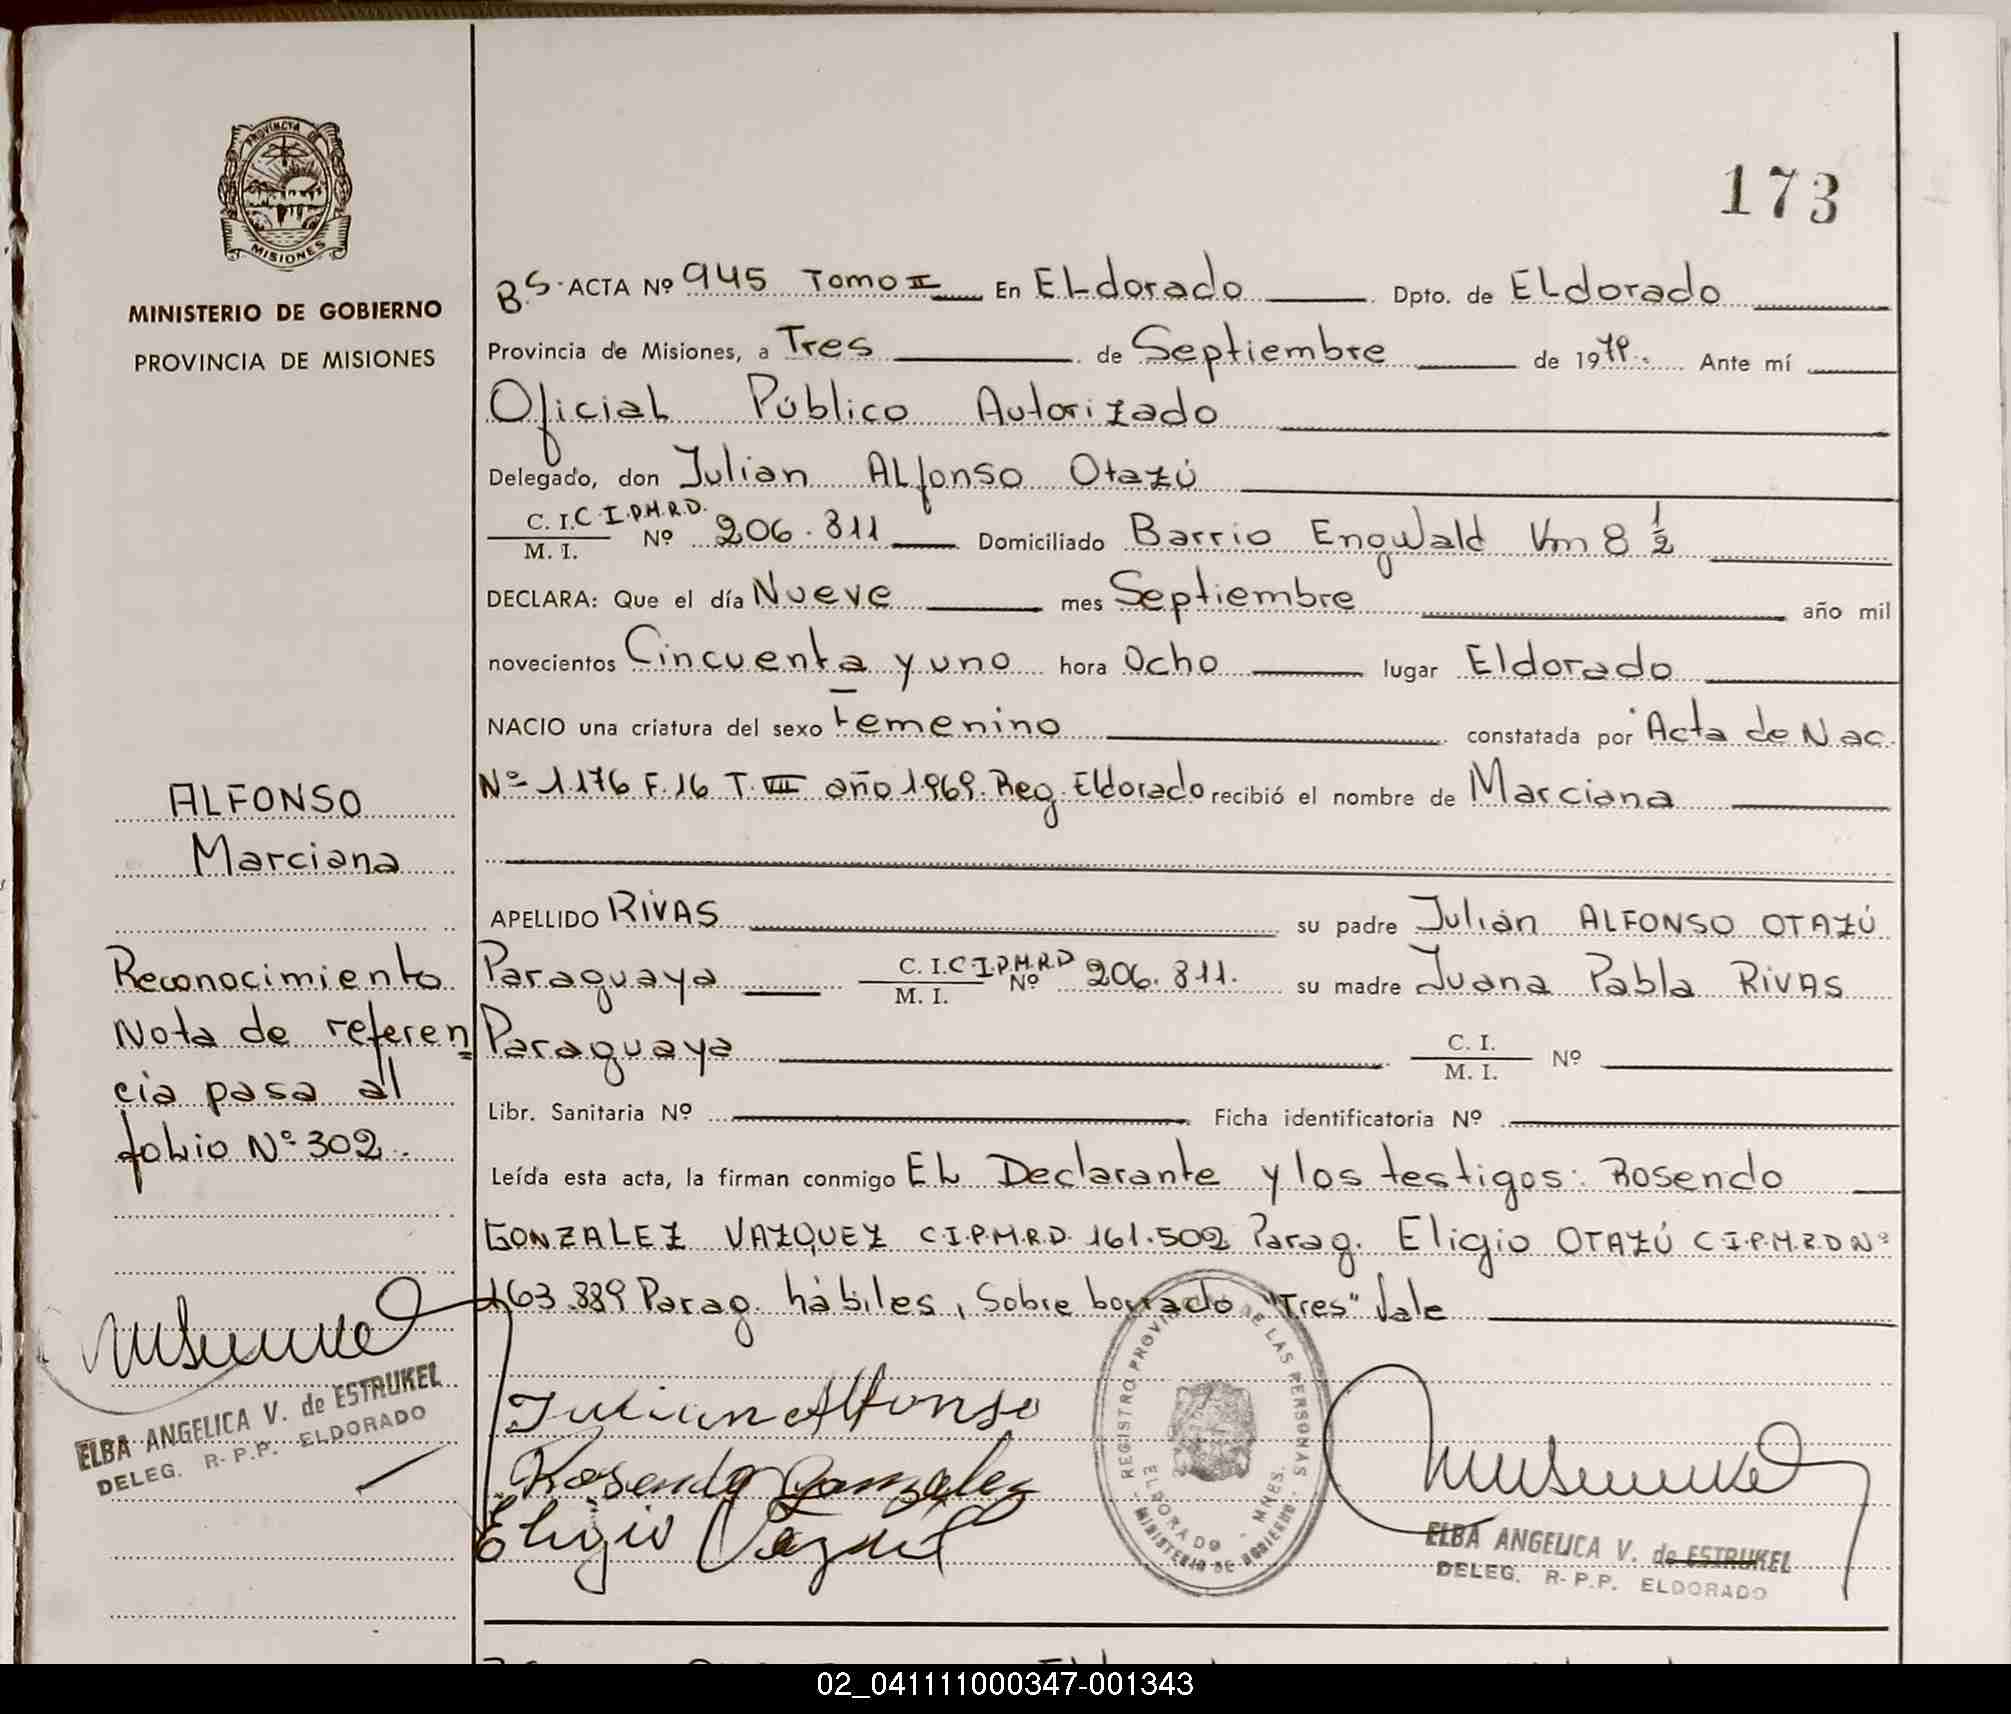 173
PROVINCIA DE
MISIONES
MINISTERIO DE GOBIERNO
PROVINCIA DE MISIONES
BS. ACTA Nº 945 Tomo II En ELdorado Dpto. de ELdorado
Provincia de Misiones, a Tres de Septiembre de 19 Ante mí
Oficial Público Autorizado
Delegado, don Julian ALfonso Otazú
C. I. C.I.P.M.R.D.
M. I. Nº 206.811 Domiciliado Barrio Engwald Km 8 1/2
DECLARA: Que el día Nueve mes Septiembre año mil
novecientos Cincuenta y uno hora Ocho lugar Eldorado
NACIO una criatura del sexo Femenino constatada por Acta de Nac.
Nº 1.176 F. 16 T. VII año 1.969. Reg. Eldorado recibió el nombre de Marciana
APELLIDO RIVAS su padre Julián ALFONSO OTAZÚ
Paraguaya C. I. C.I.P.M.R.D
M. I. Nº 206.811. su madre Juana Pabla RIVAS
Paraguaya C. I.
M. I. Nº
Libr. Sanitaria Nº Ficha identificatoria Nº
Leída esta acta, la firman conmigo EL Declarante y los testigos: Rosendo
GONZALEZ VAZQUEZ C.I.P.M.R.D. 161.502 Parag. Eligio OTAZÚ C.I.P.M.R.D Nº
163.889 Parag. hábiles, Sobre borrado "Tres" Vale
ALFONSO
Marciana
Reconocimiento
Nota de referen
cia pasa al
folio Nº 302.
ELBA ANGELICA V. de ESTRUKEL
DELEG. R-P.P. ELDORADO
Julian Alfonso
Rosendo Gonzalez
Eligio
REGISTRO PROVINCIAL DE LAS PERSONAS
ELDORADO - MNES.
MINISTERIO DE GOBIERNO
ELBA ANGELICA V. de ESTRUKEL
DELEG. R-P.P. ELDORADO
02_041111000347-001343